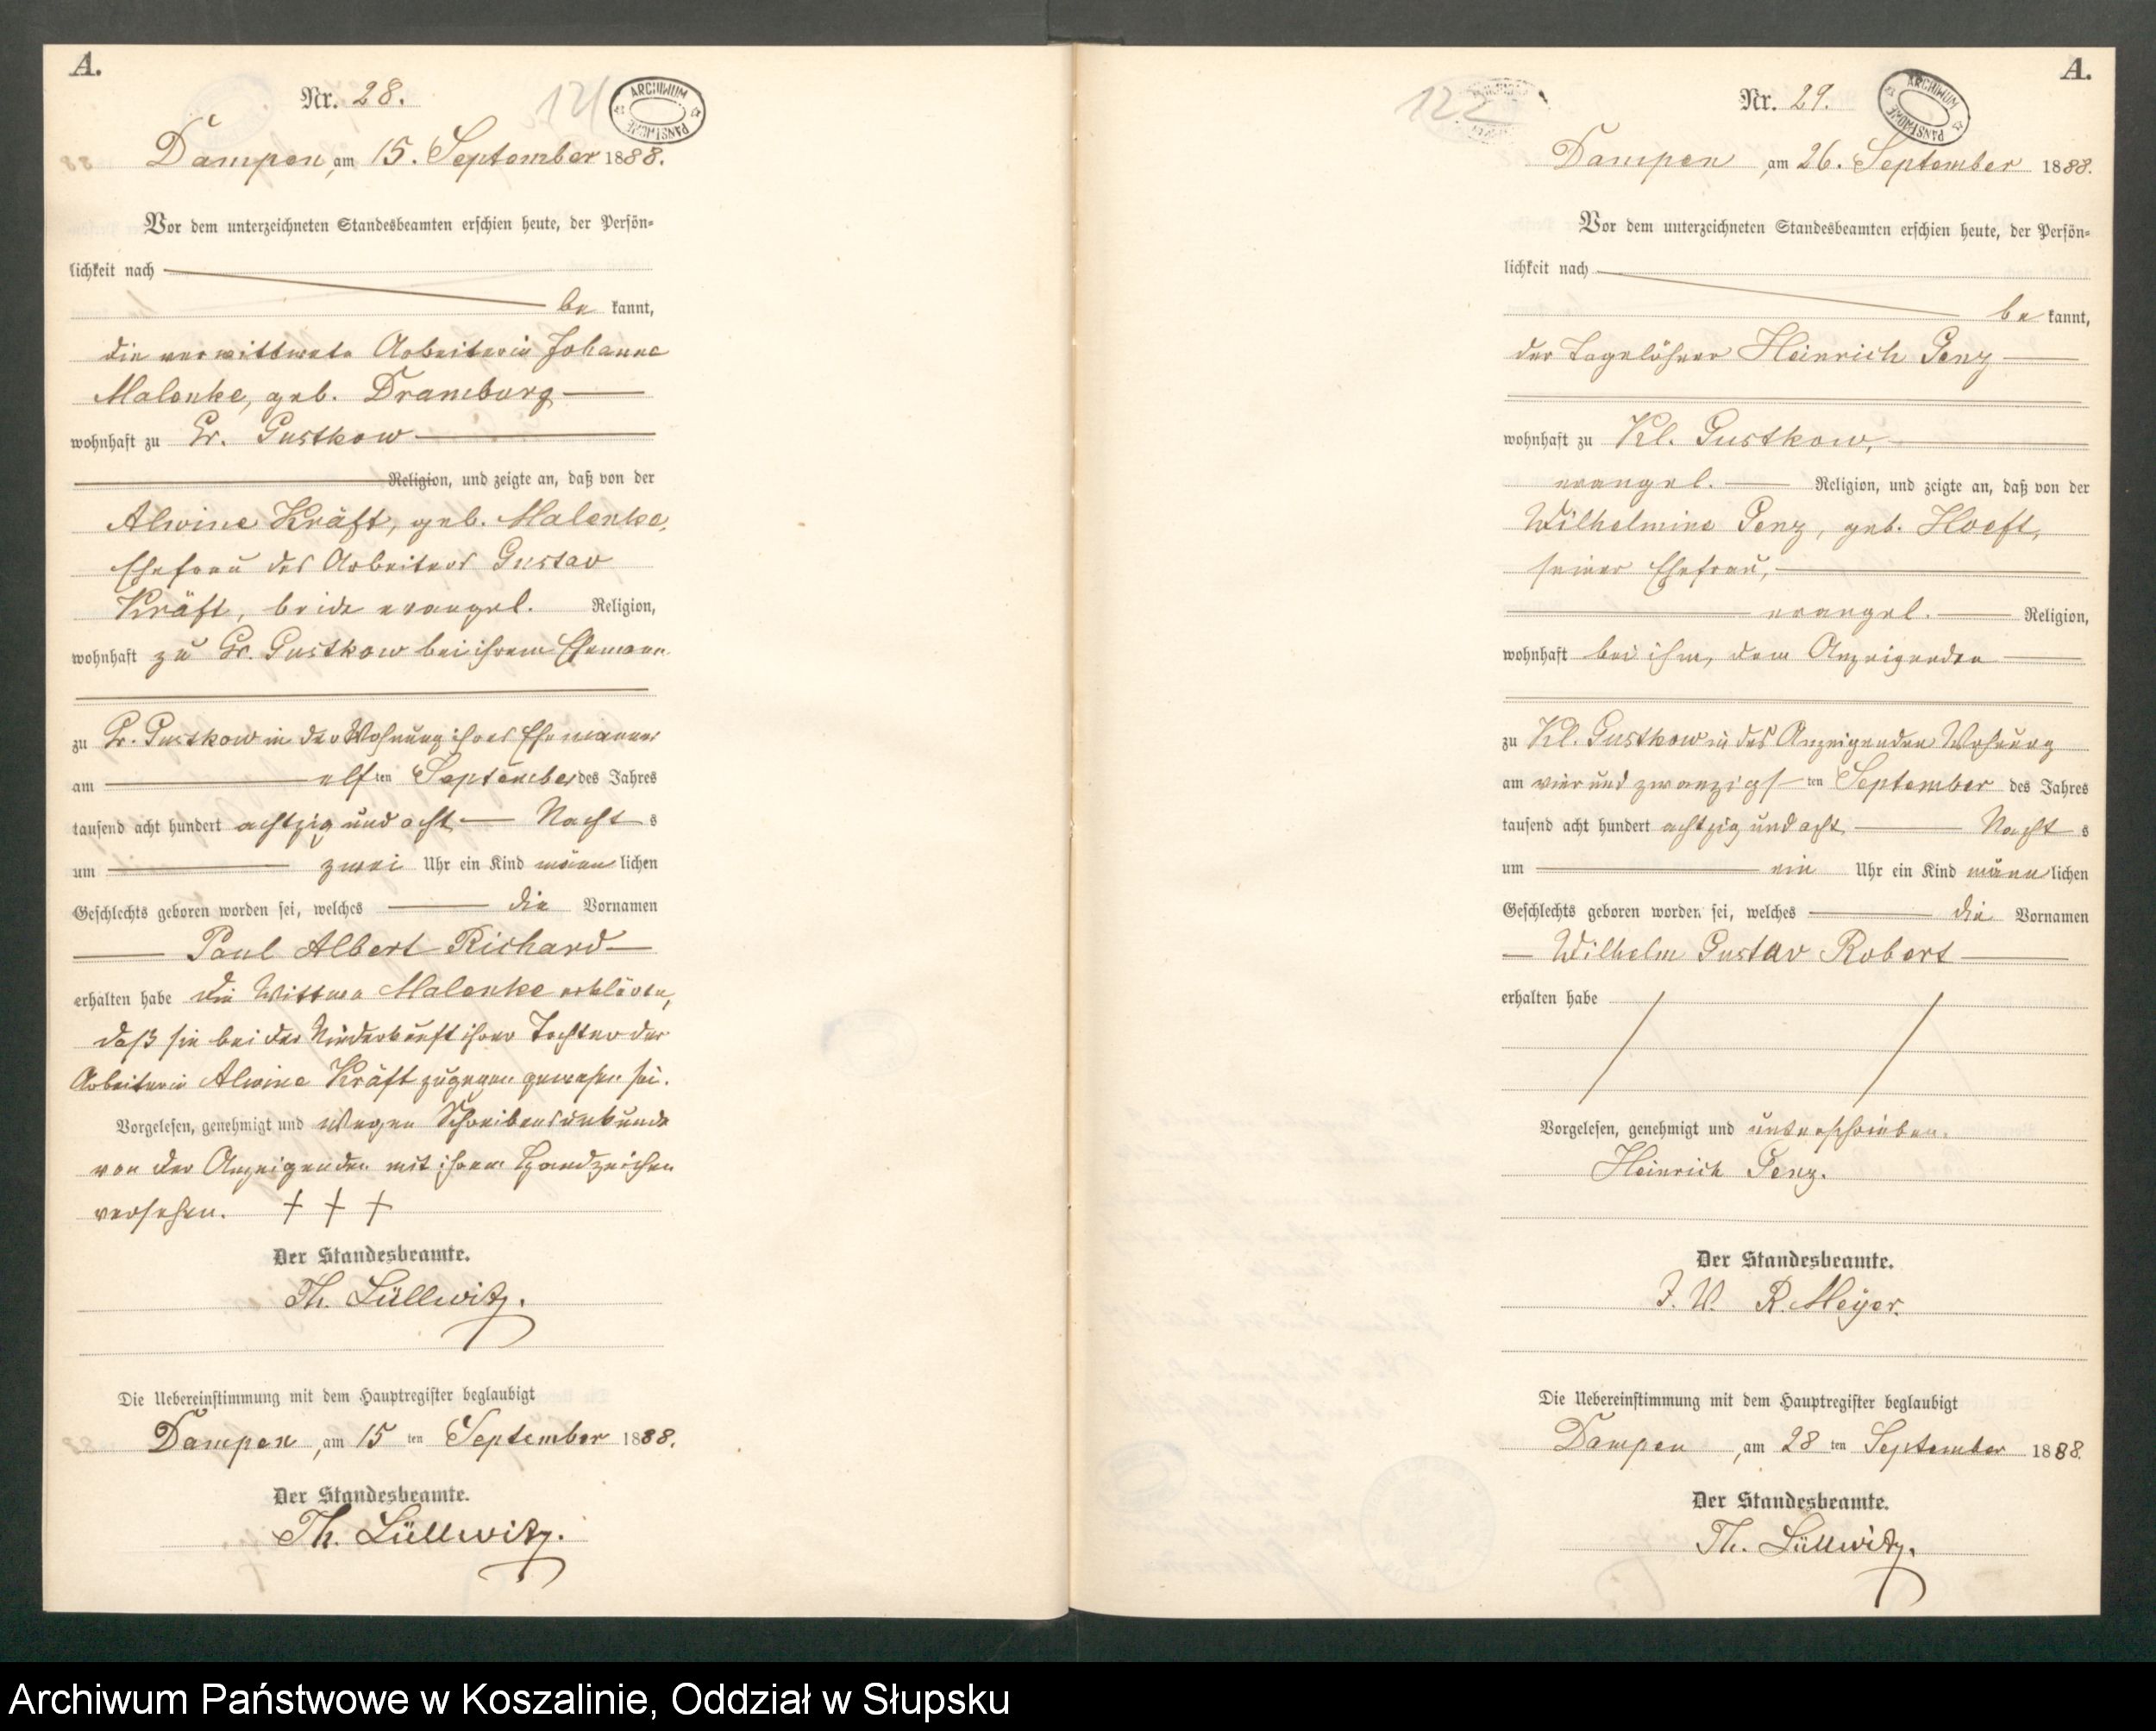 A.
Nr. 28.
121
ARCHIWUM PAŃSTWOWE
Dampen, am 15. September 1888.
Vor dem unterzeichneten Standesbeamten erschien heute, der Persön=
lichkeit nach
be kannt,
die verwittwete Arbeiterin Johanne
Malenke, geb. Dramburg
wohnhaft zu Gr. Gustkow
Religion, und zeigte an, daß von der
Alwine Kräft, geb. Malenke,
Ehefrau des Arbeiters Gustav
Kräft, beide evangel. Religion,
wohnhaft zu Gr. Gustkow bei ihrem Ehemann
zu Gr. Gustkow in der Wohnung ihres Ehemannes
am elf ten September des Jahres
tausend acht hundert achtzig und acht Nacht s
um zwei Uhr ein Kind männ lichen
Geschlechts geboren worden sei, welches die Vornamen
Paul Albert Richard
erhalten habe die Wittwe Malenke erklärte,
daß sie bei der Niederkunft ihrer Tochter der
Arbeiterin Alwine Kräft zugegen gewesen sei.
Vorgelesen, genehmigt und wegen Schreibensunkunde
von der Anzeigenden mit ihrem Handzeichen
versehen. + + +
Der Standesbeamte.
Th. Lüllwitz.
Die Uebereinstimmung mit dem Hauptregister beglaubigt
Dampen, am 15 ten September 1888.
Der Standesbeamte.
Th. Lüllwitz.
A.
Nr. 29.
122
ARCHIWUM PAŃSTWOWE
Dampen, am 26. September 1888.
Vor dem unterzeichneten Standesbeamten erschien heute, der Persön=
lichkeit nach
be kannt,
der Tagelöhner Heinrich Penz
wohnhaft zu Kl. Gustkow,
evangel. Religion, und zeigte an, daß von der
Wilhelmine Penz, geb. Hoeft,
seiner Ehefrau,
evangel. Religion,
wohnhaft bei ihm, dem Anzeigenden
zu Kl. Gustkow in des Anzeigenden Wohnung
am vier und zwanzigs ten September des Jahres
tausend acht hundert achtzig und acht Nacht s
um ein Uhr ein Kind männ lichen
Geschlechts geboren worden sei, welches die Vornamen
Wilhelm Gustav Robert
erhalten habe
Vorgelesen, genehmigt und unterschrieben.
Heinrich Penz.
Der Standesbeamte.
J. V. R. Meyer.
Die Uebereinstimmung mit dem Hauptregister beglaubigt
Dampen, am 28 ten September 1888.
Der Standesbeamte.
Th. Lüllwitz.
Archiwum Państwowe w Koszalinie, Oddział w Słupsku